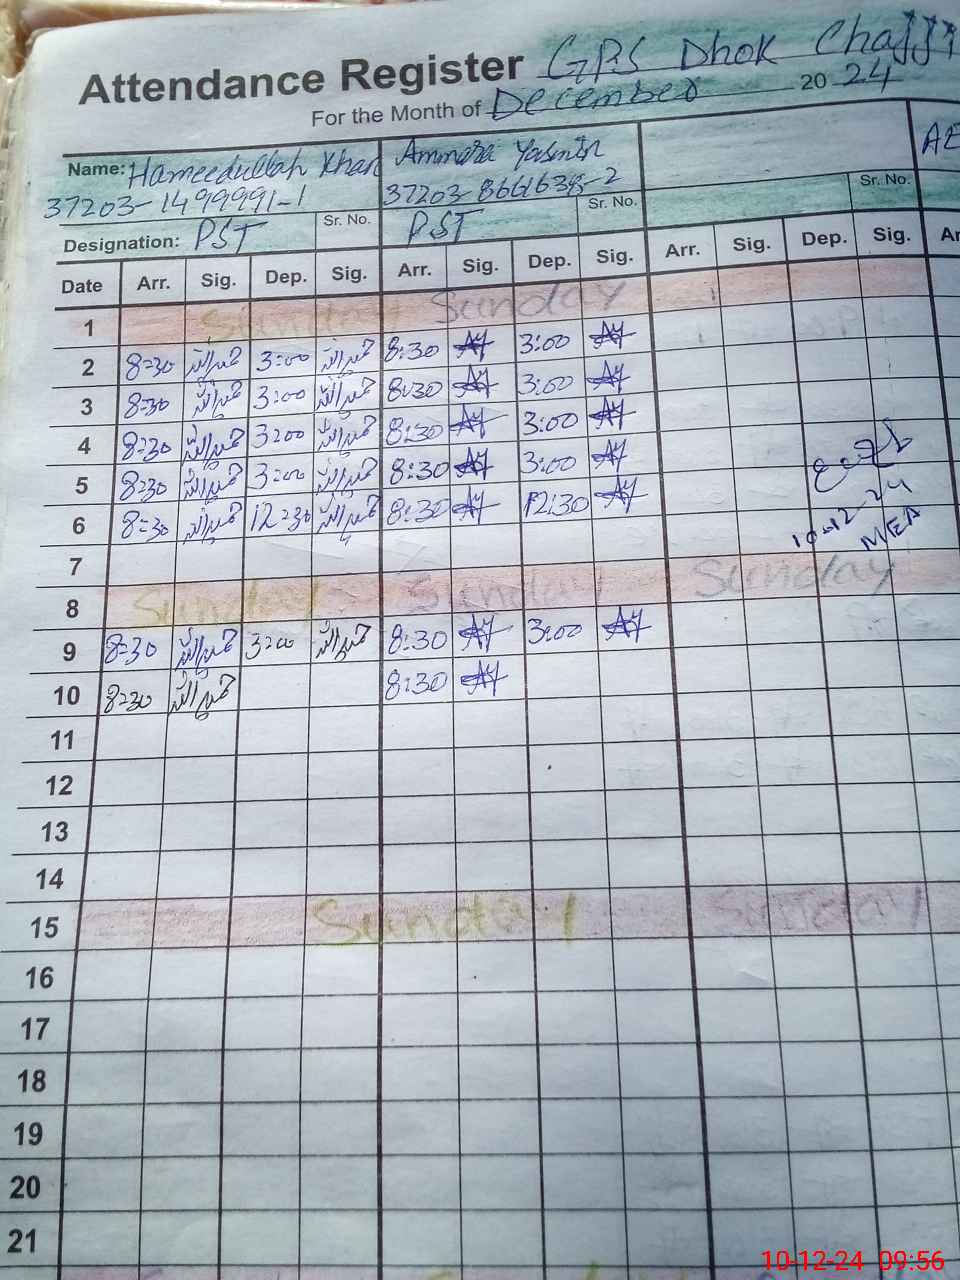 Attendance Register GPS Dhok Chajji
For the Month of December 2024
Name: Hameedullah Khan Ammara Yasmin AE
37203-1499991-1 37203-8661638-2
Sr. No. Sr. No. Sr. No.
Designation: PST PST
Date Arr. Sig. Dep. Sig. Arr. Sig. Dep. Sig. Arr. Sig. Dep. Sig. Ar
1 Sunday Sunday
2 8=30 3:00 8:30 AY 3:00 AY
3 8=30 3:00 8:30 AY 3:00 AY
4 8=30 3:00 8:30 AY 3:00 AY
5 8=30 3=00 8:30 AY 3:00 AY
6 8=30 12=30 8:30 AY 12:30 AY
10-12-24
MEA
7
8 Sunday Sunday Sunday
9 8=30 3=00 8:30 AY 3:00 AY
10 8=30 8:30 AY
11
12
13
14
15 Sunday Sunday
16
17
18
19
20
21
10-12-24 09:56